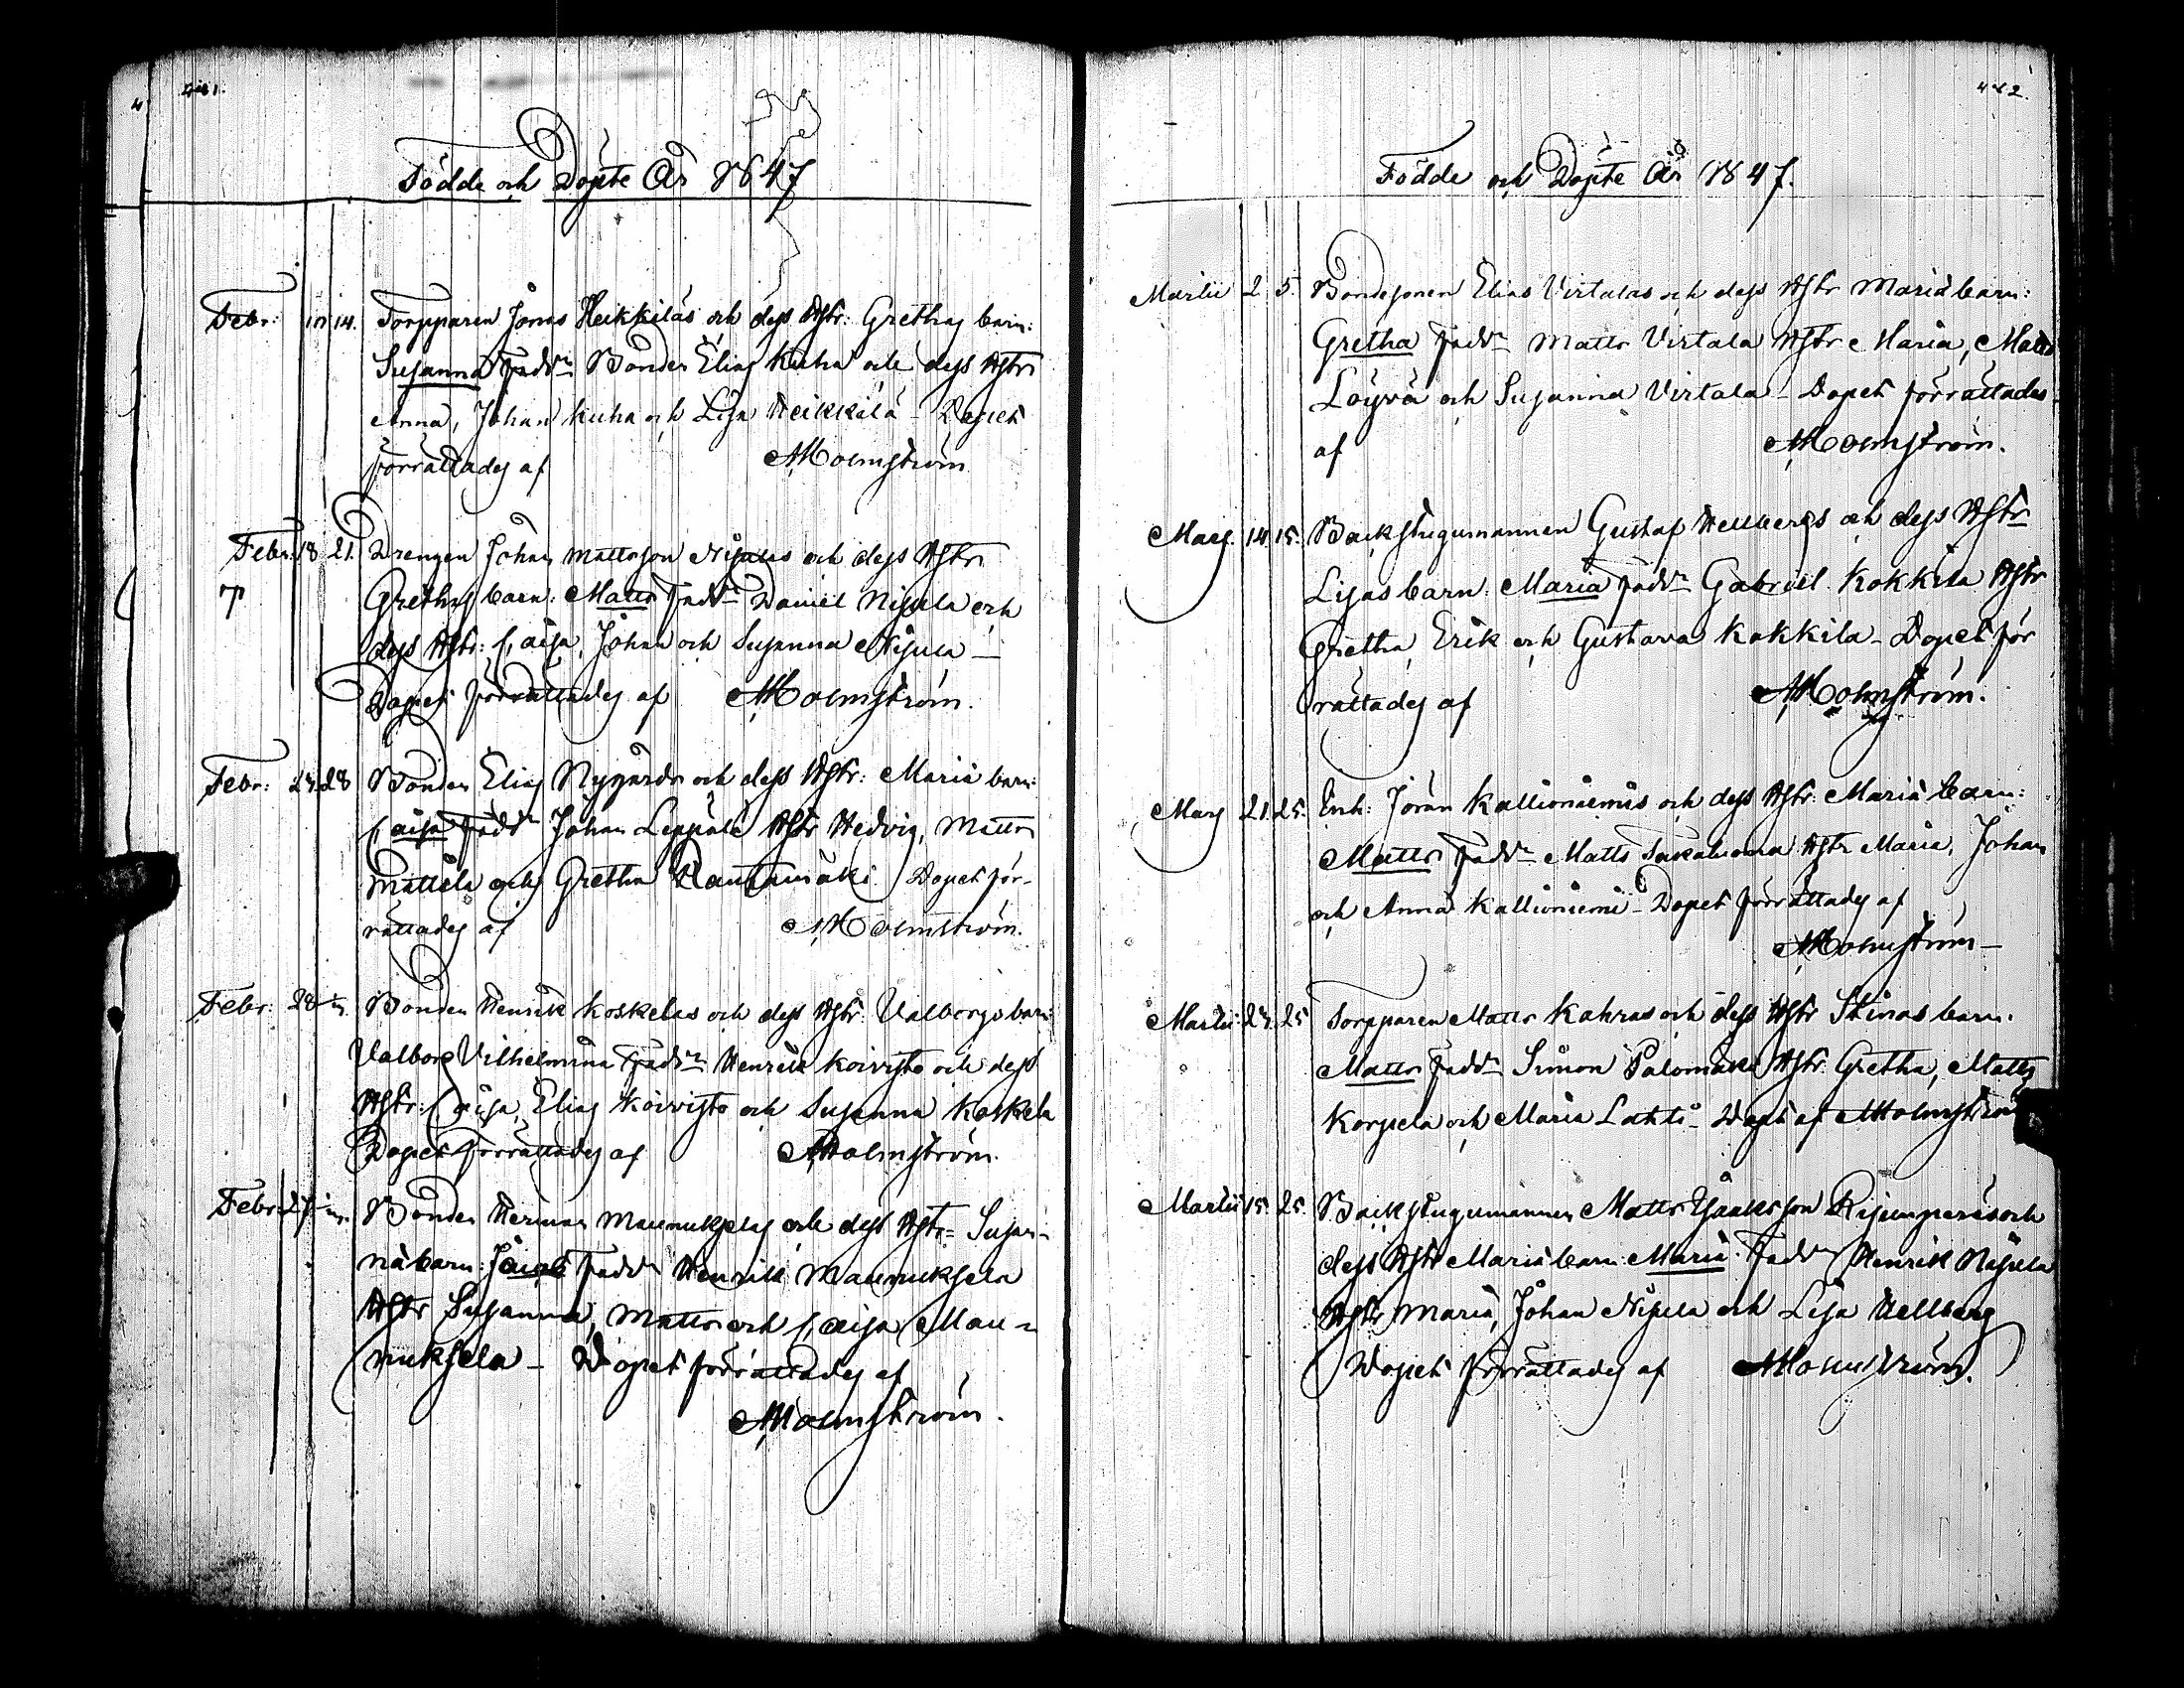 481.
Födde och Döpte År 1847
Febr: 10 14. Torpparen Jonas Heikkiläs och dess Hstr: Grethas barn:
Susanna Fadd:r Bonden Elias Kuha och dess Hstr
Anna, Johan Kuha och Lisa Heikkilä - Dopet
förrättades af AHolmström
Febr: 18 21. Drengen Johan Mattsson Nisulas och dess Hstr
Grethas barn: Matts Fadd:r Daniel Nisula och
dess Hstr: Caisa, Johan och Susanna Nisula —
Dopet förrättades af AHolmström.
Febr: 24 28 Bonden Elias Nygårds och dess Hstr: Mariæ barn:
Caisa Fadd:r Johan Leppälä Hstr Hedvig, Matts
Mattila och Gretha Rantamäki Dopet för-
rättades af AHolmström.
Febr: 28 Bonden Henrik Koskelas och dess Hstr: Valborgs barn:
Valborg Vilhelmina Fadd:r Henrik Koivisto och dess
Hstr: Caisa, Elias Koivisto och Susanna Koskela
Dopet förrättades af AHolmström.
Febr: 27 Bonden Herman Maunukselas och dess Hstr= Susan-
næ barn: Jacob Fadd:r Henrik Maunuksela
Hstr Susanna, Matts och Caisa Mau=
nuksela - Dopet förrättades af
AHolmström.
482.
Födde och Döpte År 1847.
Martii 2 5. Bondesonen Elias Virtalas och dess Hstr Mariæ barn:
Gretha Fadd:r Matts Virtala Hstr Maria, Matts
Löyvä och Susanna Virtala - Dopet förrättades
af AHolmström.
Mars. 14 15. Backstugumannen Gustaf Hellbergs och dess Hstr
Lisas barn: Maria Fadd:r Gabriel Kokkila Hstr
Gretha, Erik och Gustava Kokkila - Dopet för
rättades af AHolmström.
Mars 21 25. Enh: Jöran Kallioniemis och dess Hstr: Mariæ barn:
Matts Fadd:r Matts Hstr Maria, Johan
och Anna Kallioniemi - Dopet förrättades af
AHolmström —
Martii 24 25 Torpparen Matts Kahras och dess Hstr Stinas barn:
Matts Fadd:r Simon Palomäki Hstr Gretha, Matts
Korpela och Maria Lahti - Döpt af AHolmström
Martii 15. 25. Backstugumannen Matts Isaksson och
dess Hstr Mariæ barn: Maria Fadd:r Henrik Nisula
Hstr Maria, Johan Nisula och Lisa Hellberg
Dopet förrättades af AHolmström.